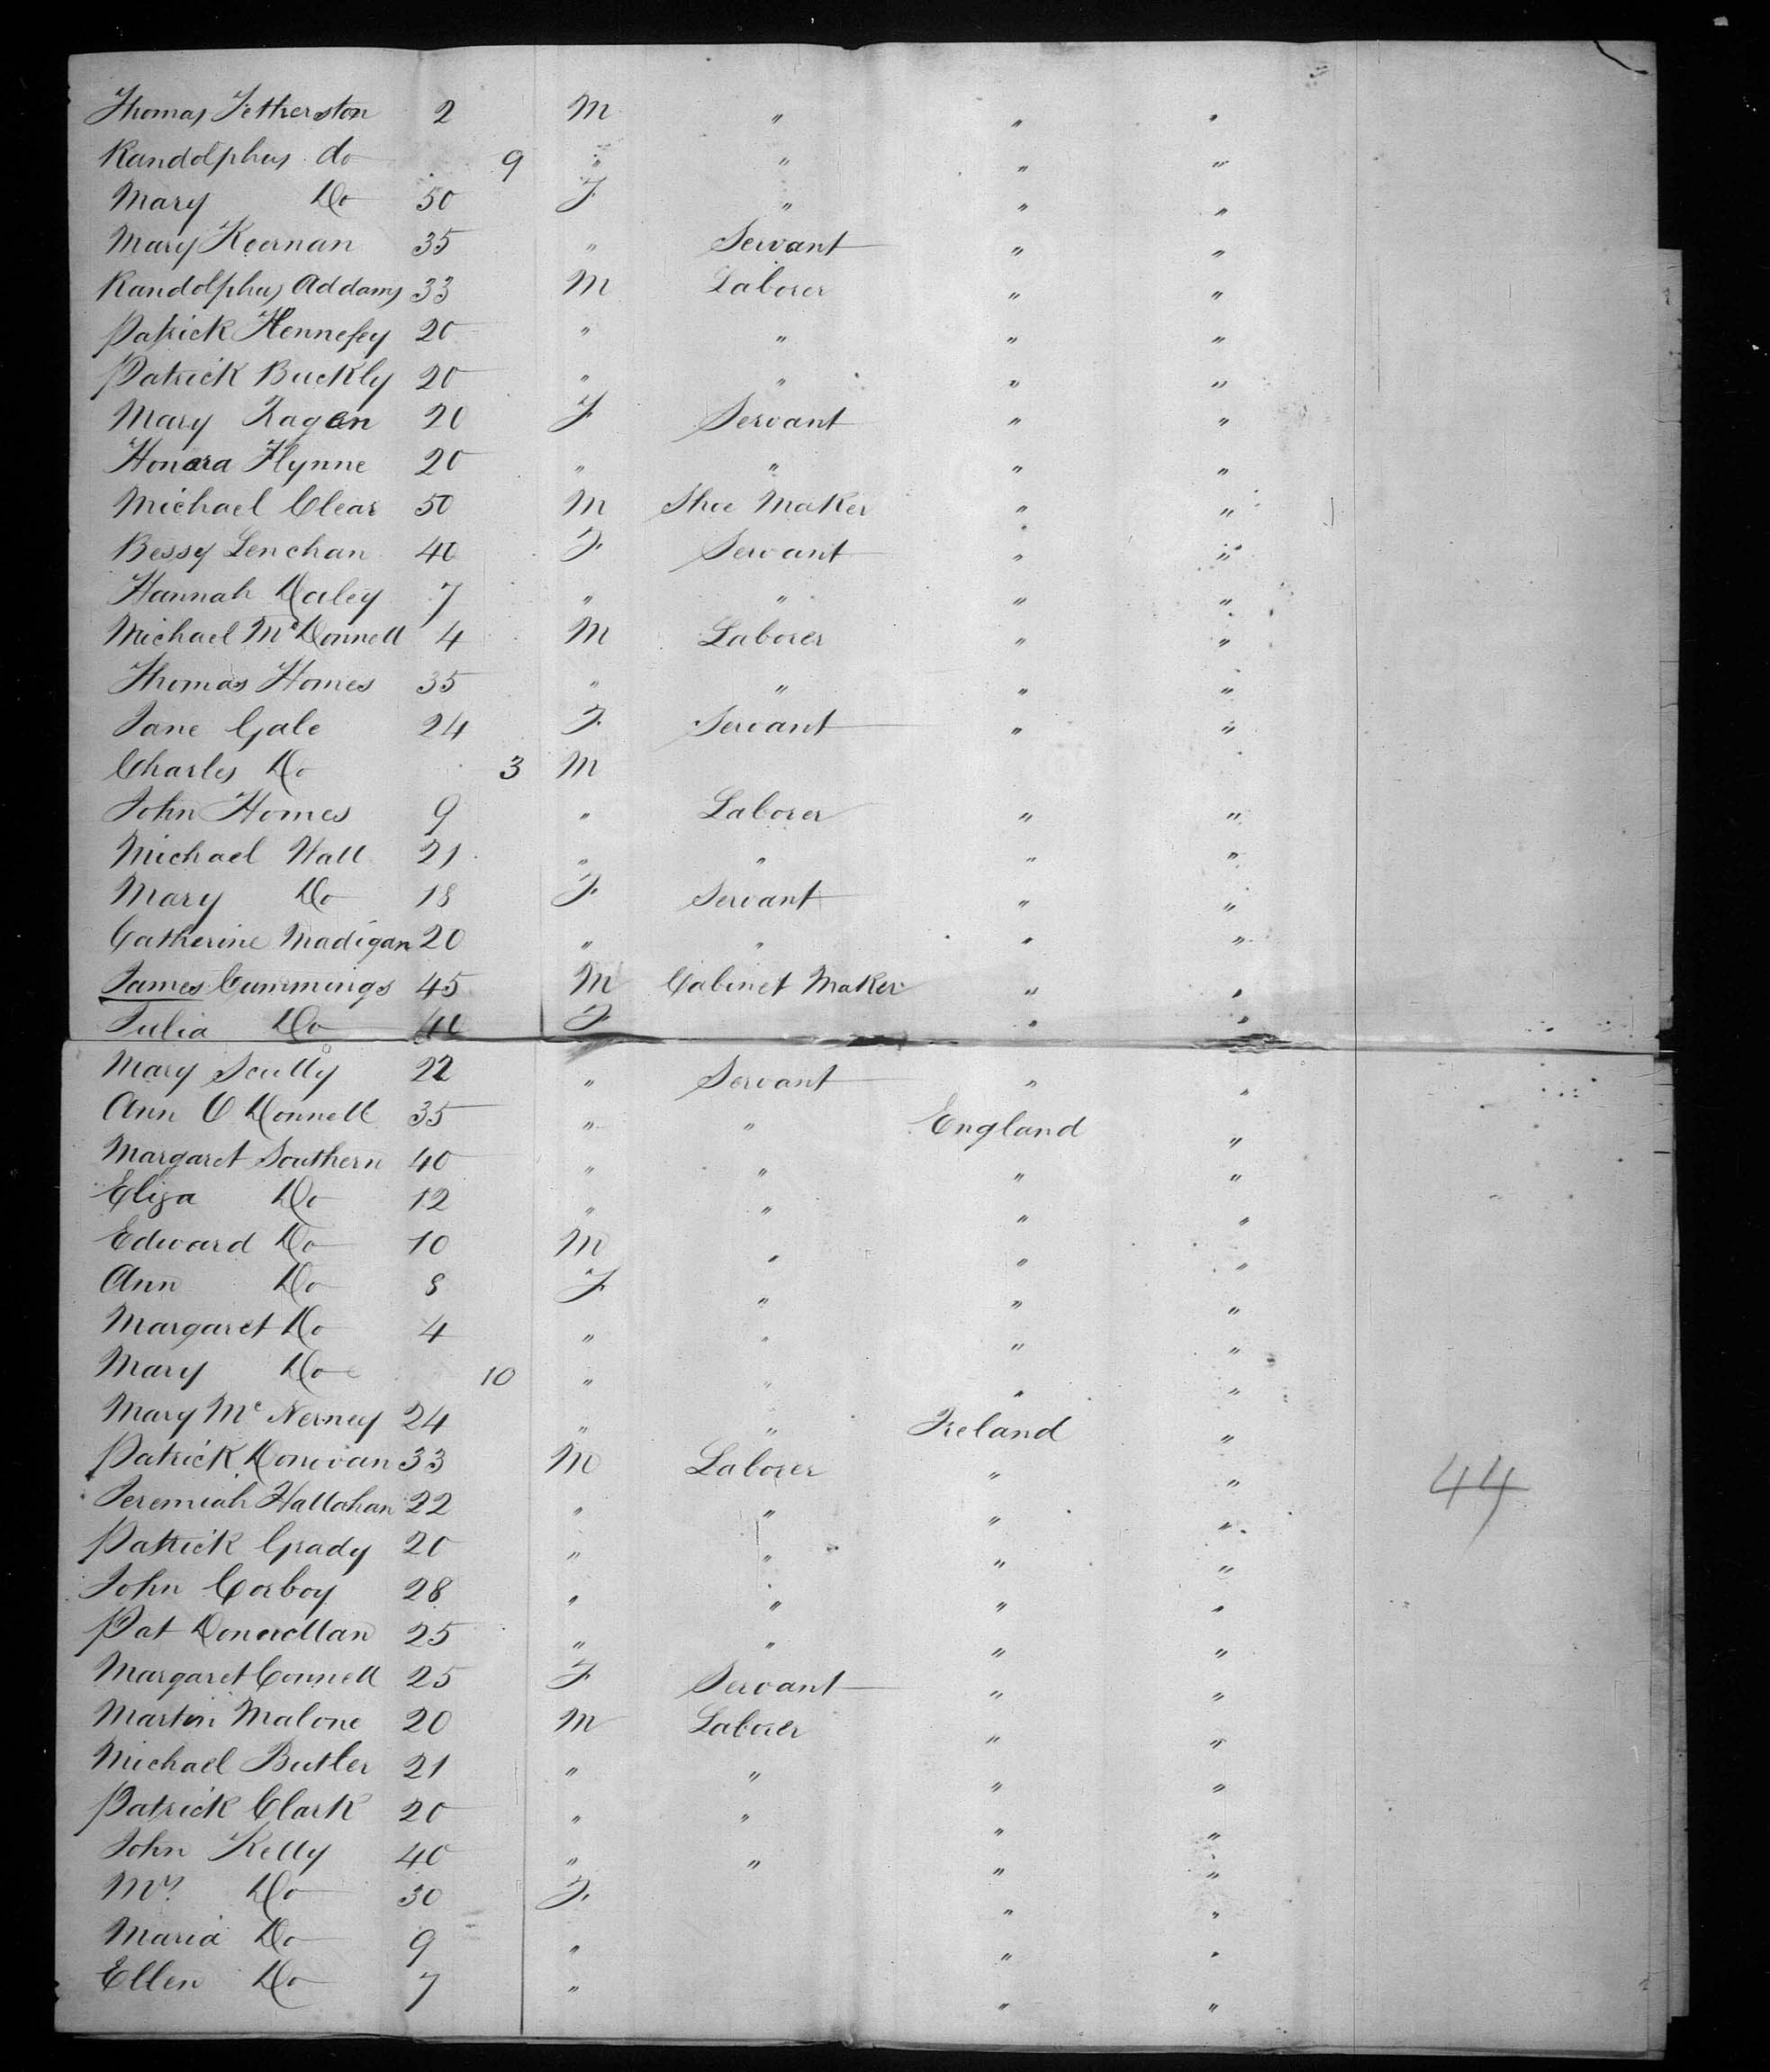 Thomas Fetherston 2 M " " "
Randolphus do 9 " " " "
Mary Do 50 F " " "
Mary Keernan 35 " Servant " "
Randolphus Addams 33 M Laborer " "
Patrick Hennesey 20 " " " "
Patrick Buckly 20 " " " "
Mary Ragan 20 F Servant " "
Honora Flynne 20 " " " "
Michael Clear 50 M Shoe Maker " "
Bessy Lenehan 40 F Servant " "
Hannah Daley 7 " " " "
Michael McDonnell 4 M Laborer " "
Thomas Homes 35 " " " "
Jane Gale 24 F Servant " "
Charles Do 3 M
John Homes 9 " Laborer " "
Michael Hall 21 " " " "
Mary Do 18 F Servant " "
Catherine Madigan 20 " " " "
James Cummings 45 M Cabinet Maker " "
Julia Do 40 F " "
Mary Scully 22 " Servant " "
Ann O Donnell 35 " " England "
Margaret Southern 40 " " " "
Eliza Do 12 " " " "
Edward Do 10 M " " "
Ann Do 8 F " " "
Margaret Do 4 " " " "
Mary Do 10 " " " "
Mary Mc Nerney 24 " " Ireland "
Patrick Donovan 33 M Laborer " "
Jeremiah Hallahan 22 " " " "
44
Patrick Grady 20 " " " "
John Corboy 28 " " " "
Pat Donnellan 25 " " " "
Margaret Connell 25 F Servant " "
Martin Malone 20 M Laborer " "
Michael Butler 21 " " " "
Patrick Clark 20 " " " "
John Kelly 40 " " " "
Mrs Do 30 F " "
Maria Do 9 " " "
Ellen Do 7 " " "